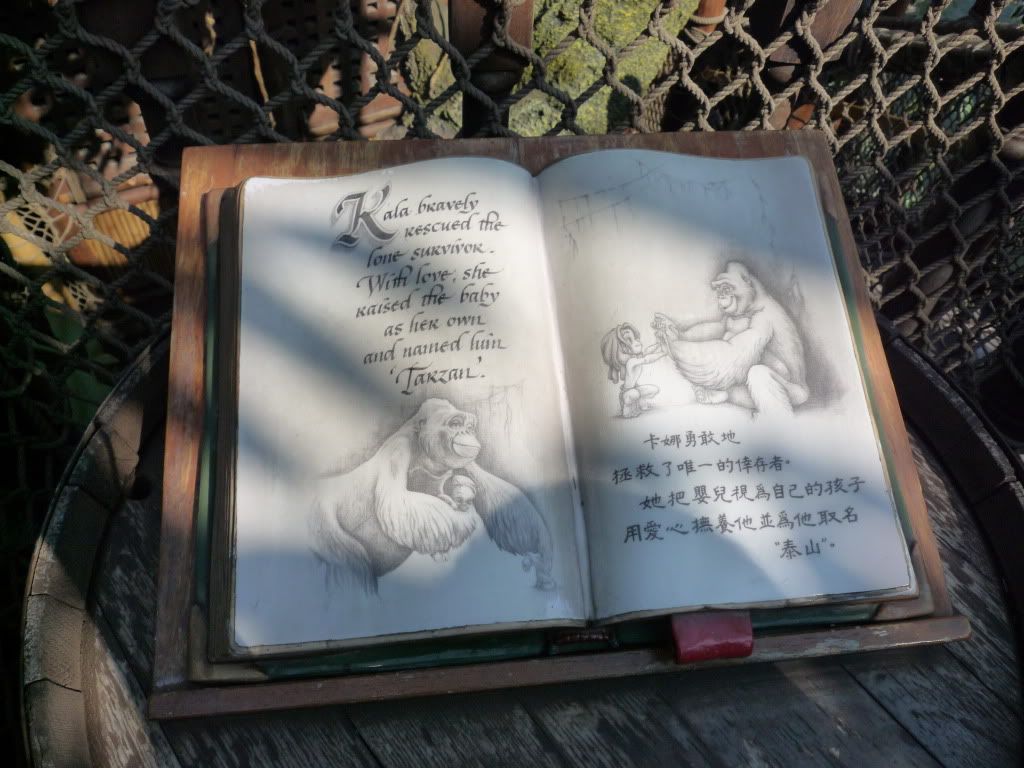 Kala bravely
rescued the
lone survivor.
With love, she
raised the baby
as her own
and named him
'Tarzan'.
卡娜勇敢地
拯救了唯一的倖存者。
她把嬰兒視爲自己的孩子
用愛心撫養他並爲他取名
“泰山”。